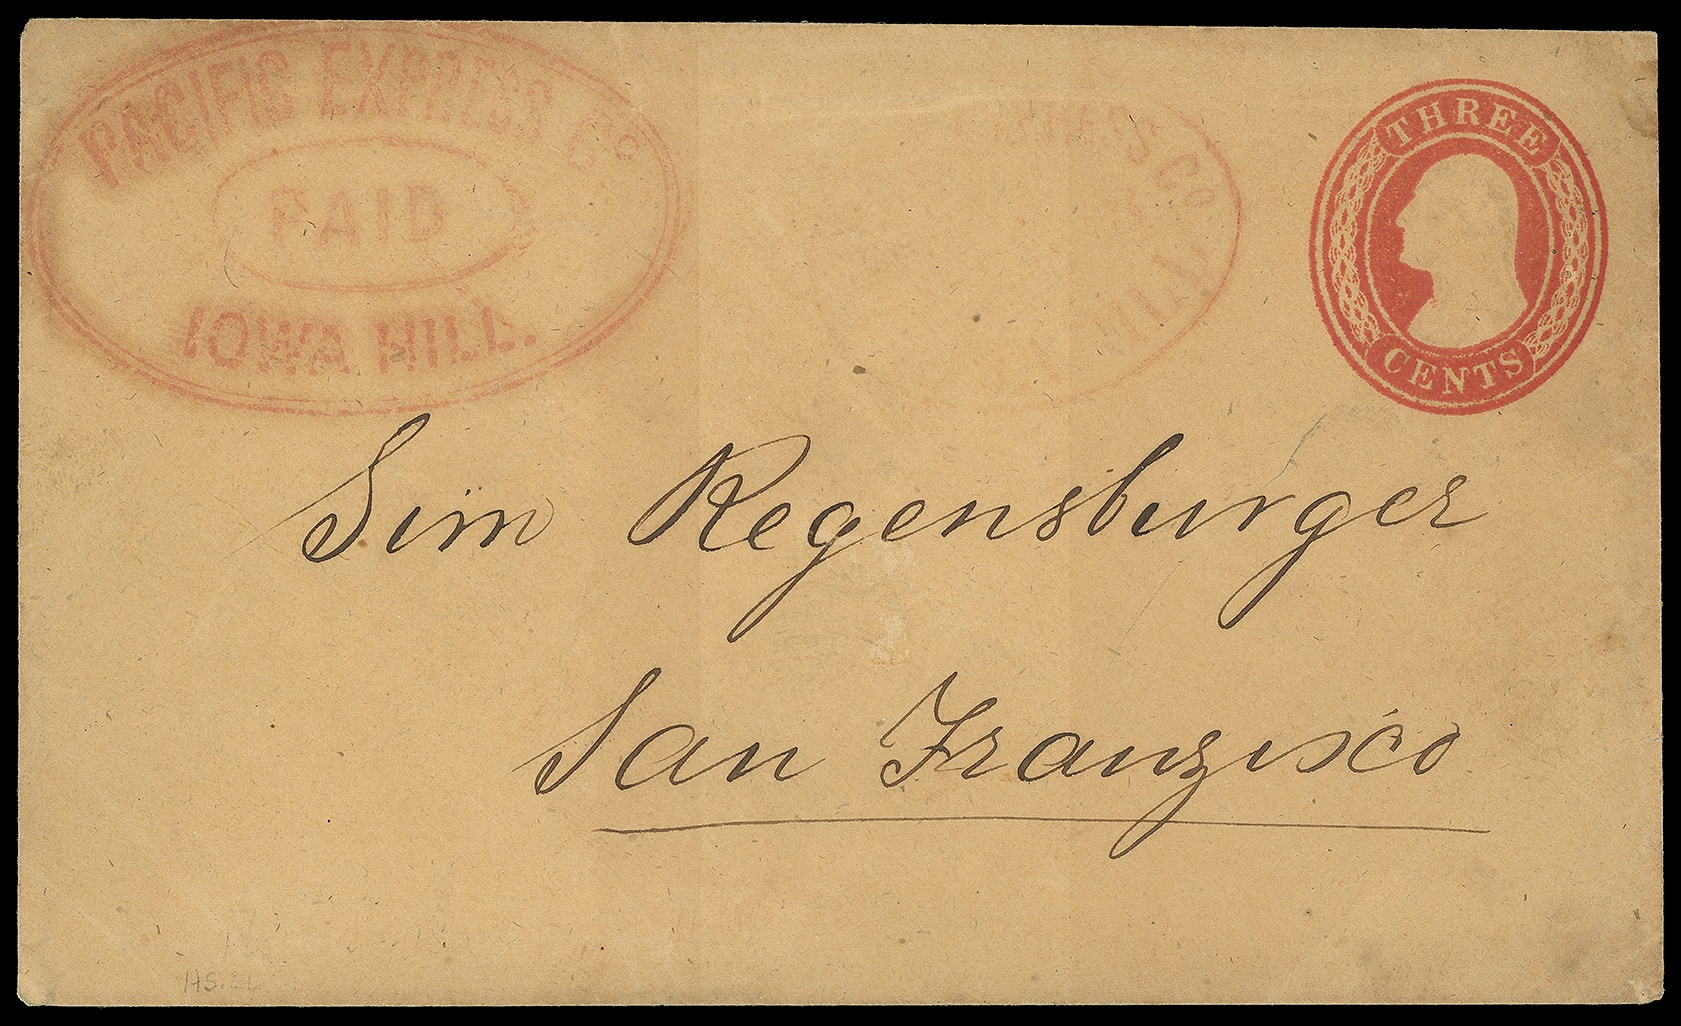 PACIFIC EXPRESS Co
PAID
IOWA HILL.
Co
THREE
CENTS
Sim Regensburger
San Franzisco